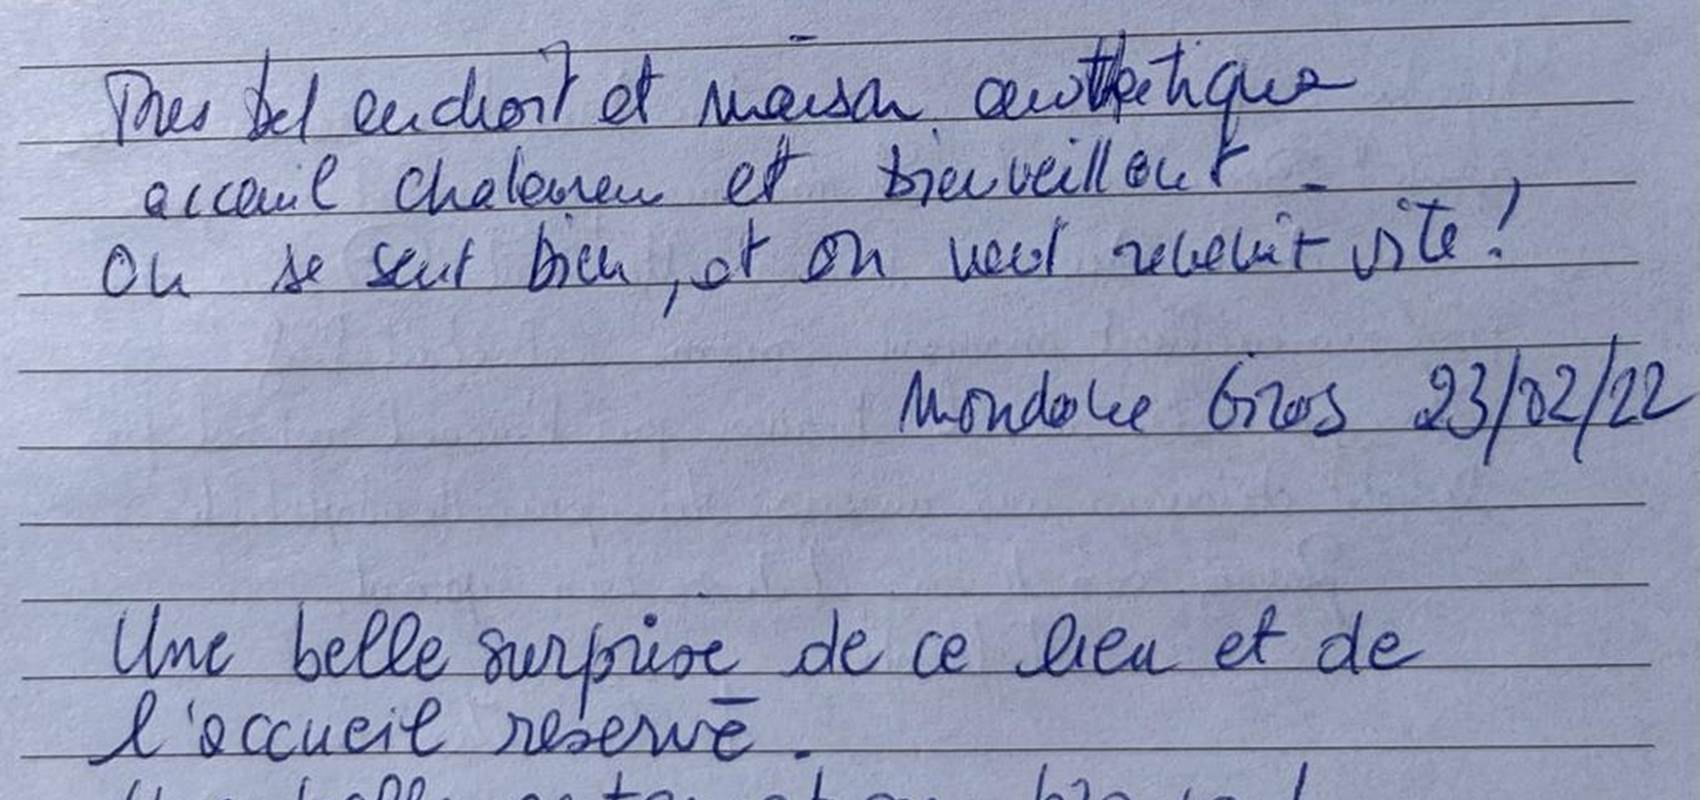 Tres bel endroit et maison authetique
acceuil chaleureu et bienveillant -
On se sent bien, et on veut revenir vite !
Gros 23/02/22
Une belle surprise de ce lieu et de
l'accueil reservé.